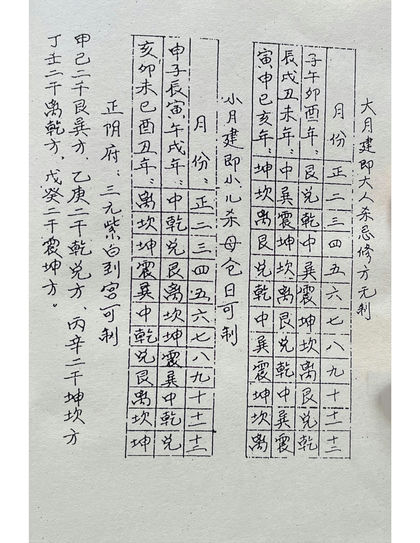 大月建即大人杀忌修方无制
月份：正二三四五六七八九十十一十二
子午卯酉年：艮兑乾中巽震坤坎离艮兑乾
辰戌丑未年：中巽震坤坎离艮兑乾中巽震
寅申巳亥年：坤坎离艮兑乾中巽震坤坎离
小月建即小儿杀母仓日可制
月份：正二三四五六七八九十十一十二
申子辰寅午戌年：中乾兑艮离坎坤震巽中乾兑
亥卯未巳酉丑年：离坎坤震巽中乾兑艮离坎坤
正阴府：三元紫白到宫可制
甲己二干艮巽方、乙庚二干乾兑方、丙辛二干坤坎方
丁壬二干离乾方、戊癸二干震坤方。